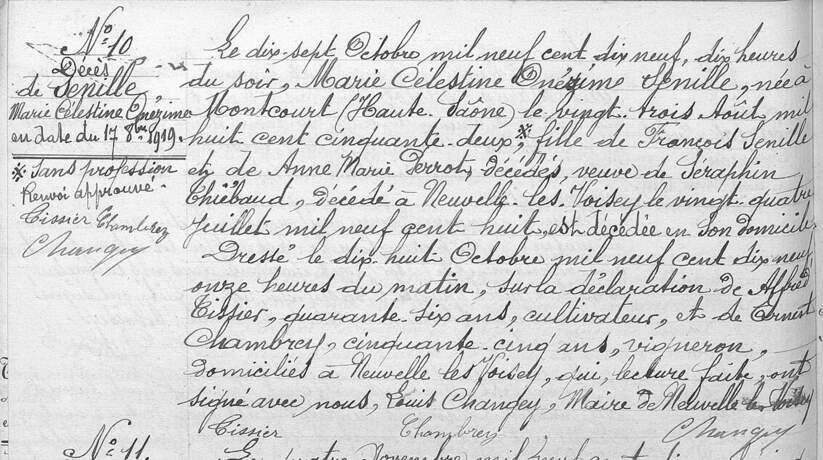 N° 10
Décès
de Senille
Marie Célestine Onézime
en date du 17 8bre 1919.
※ Sans profession
Renvoi approuvé.
Tissier Chambrey
Changey
Le dix-sept Octobre mil neuf cent dix neuf, dix heures
du soir, Marie Célestine Onézime Senille, née à
Montcourt (Haute-Saône) le vingt-trois Août mil
huit cent cinquante-deux, ※ fille de François Senille
et de Anne Marie Perrot, décédés, veuve de Séraphin
Thiébaud, décédé à Neuvelle-les-Voisey le vingt-quatre
juillet mil neuf cent huit, est décédée en son domicile.
Dressé le dix-huit Octobre mil neuf cent dix neuf
onze heures du matin, sur la déclaration de Alfred
Tissier, quarante-six ans, cultivateur, et de Ernest
Chambrey, cinquante-cinq ans, vigneron,
domiciliés à Neuvelle les Voisey, qui, lecture faite, ont
signé avec nous, Louis Changey, Maire de Neuvelle les Voisey
Tissier Chambrey Changey
N° 11.
Novembre mil neuf cent